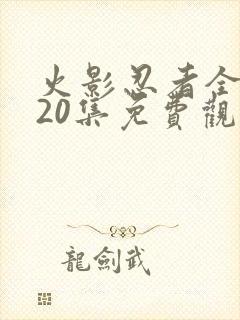 火影忍者全
20集免費觀
龍劍武